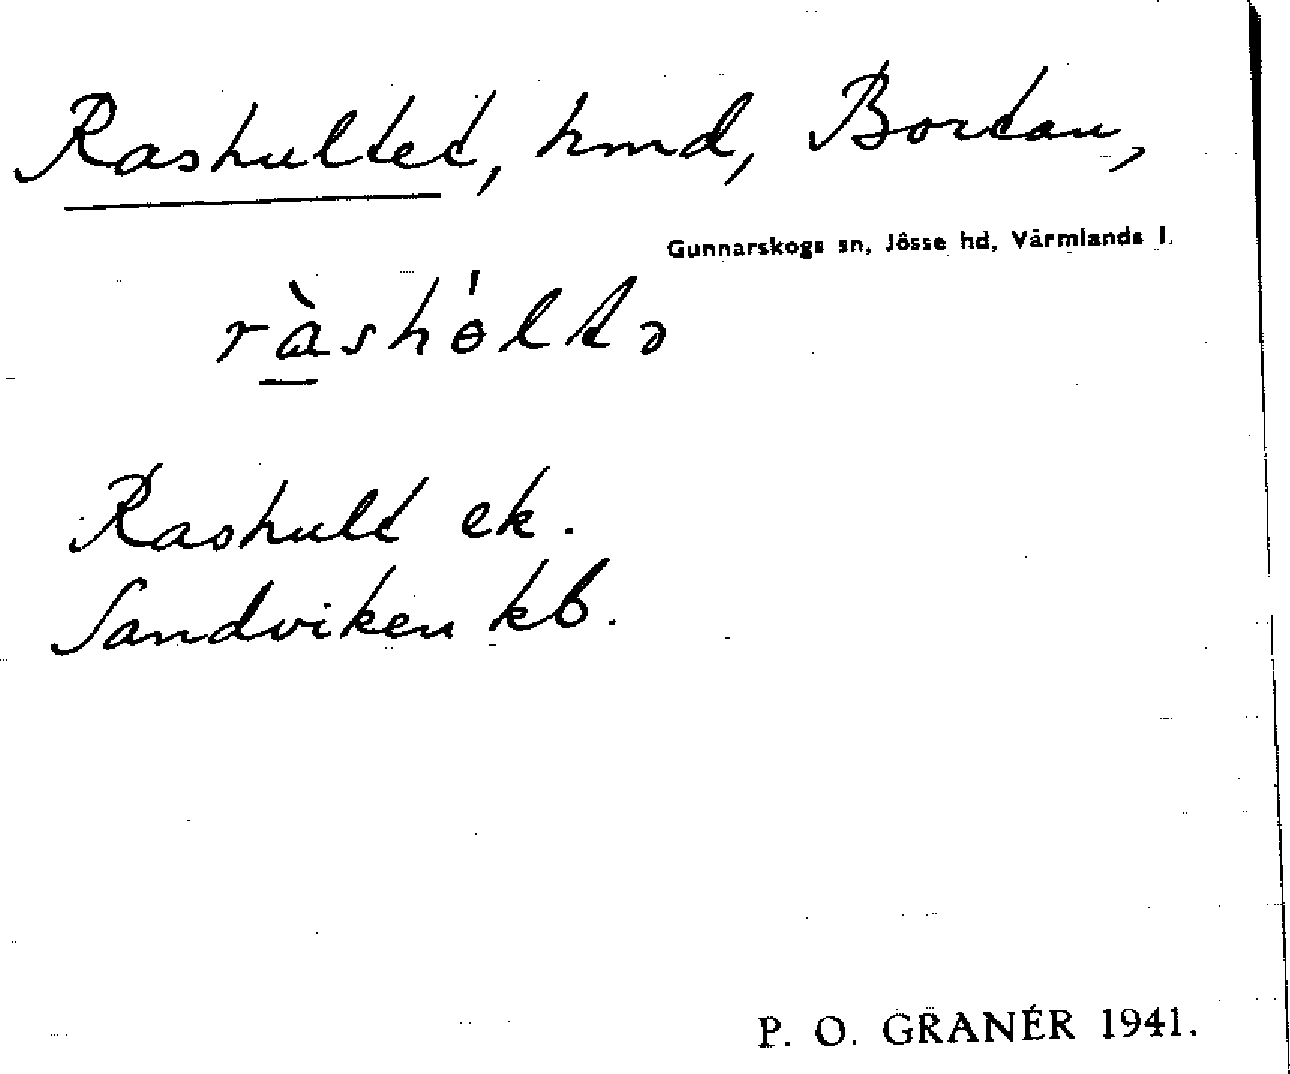 Rashultet, hmd, Bortan,
Gunnarskogs sn, Jösse hd, Värmlands l.
ràshɵ́ltə
Rashult ek.
Sandviken kb.
P. O. GRANÉR 1941.